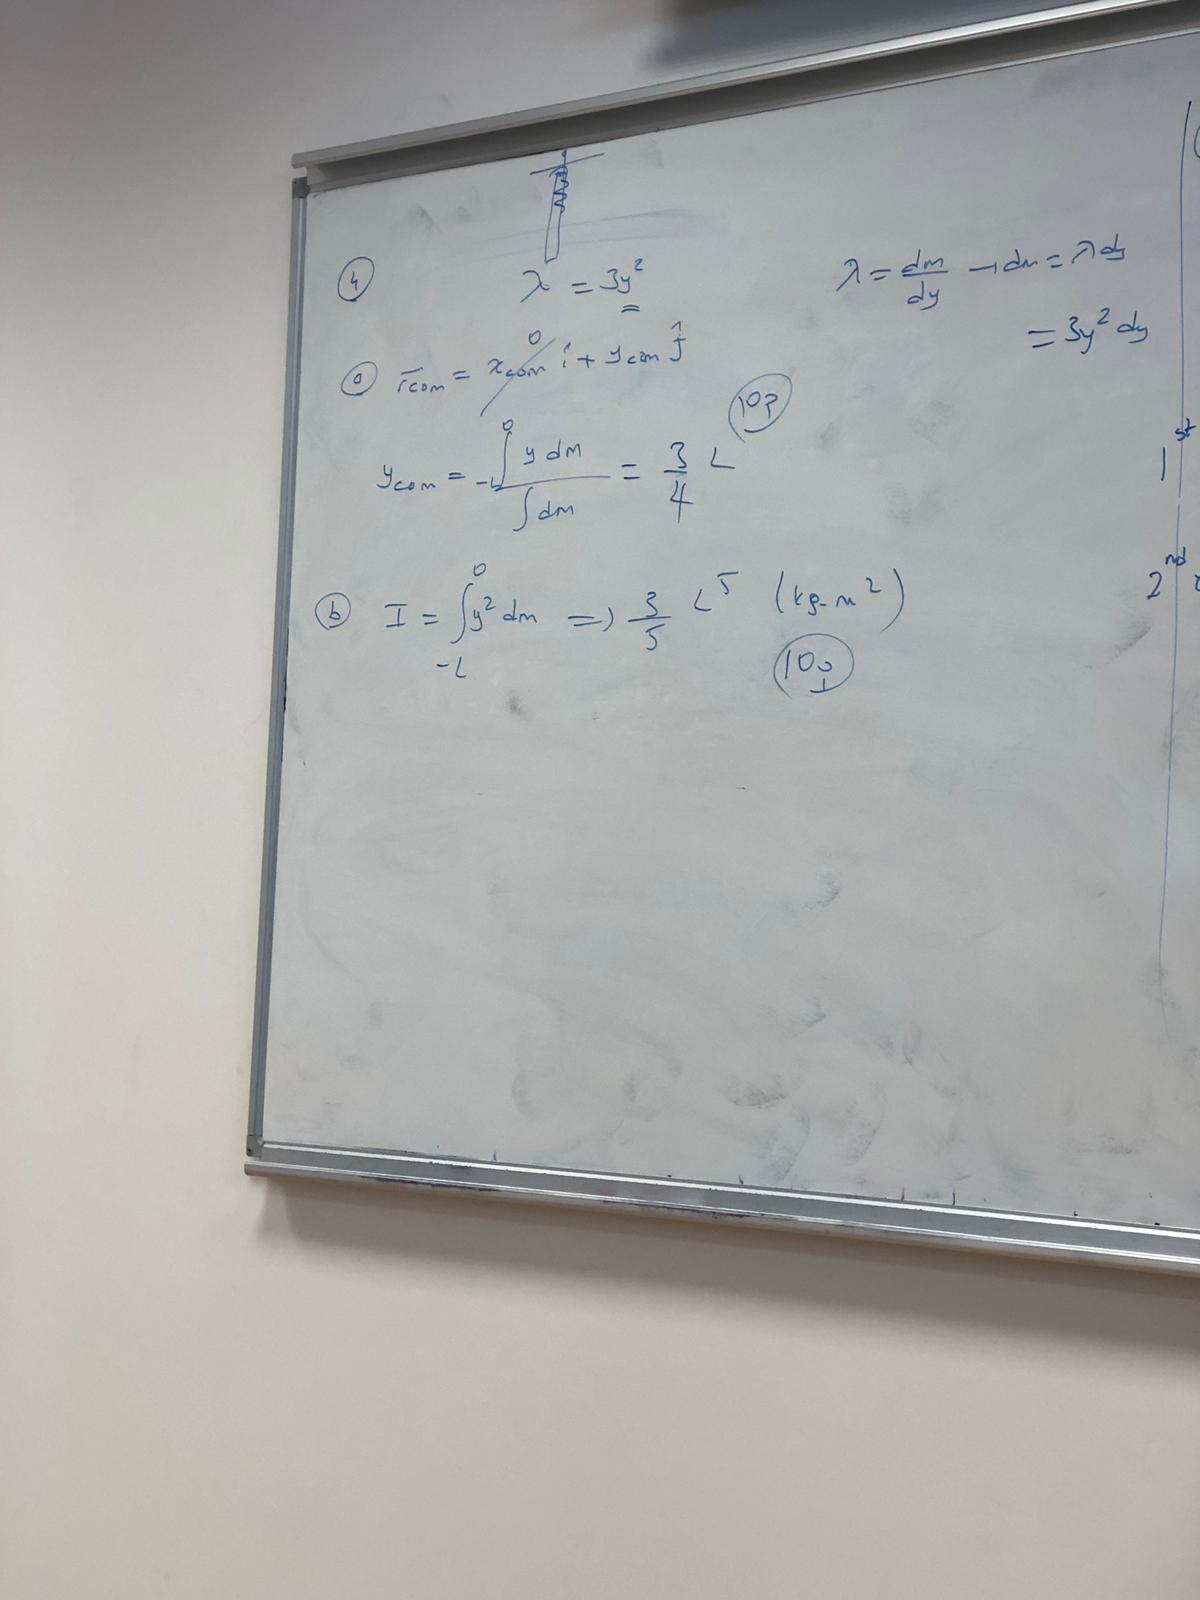 4
λ = 3y²
λ = dm/dy → dm = λ dy
= 3y² dy
a r̄com = xcom î + ycom ĵ
0
10p
ycom = ∫₋L⁰ y dm / ∫ dm = 3/4 L
b I = ∫₋L⁰ y² dm => 3/5 L⁵ (kg-m²)
10p
1st
2nd